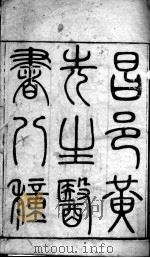 昌邑黄
先生醫
書八種
mtoou.info